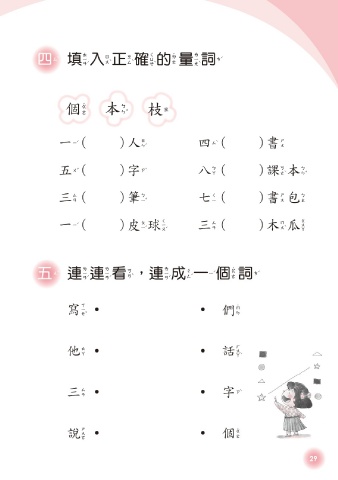 四 填入正確的量詞
個 本 枝
一（ ）人 四（ ）書
五（ ）字 八（ ）課本
三（ ）筆 七（ ）書包
一（ ）皮球 三（ ）木瓜
五 連連看，連成一個詞
寫 • • 們
他 • • 話
三 • • 字
說 • • 個
29